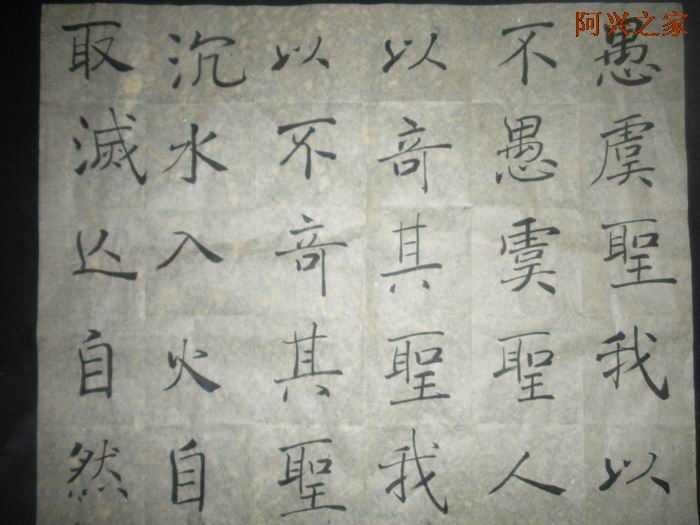 阿兴之家
愚虞聖我以
不愚虞聖人
以竒其聖我
以不竒其聖
沉水入火自
取滅亾自然